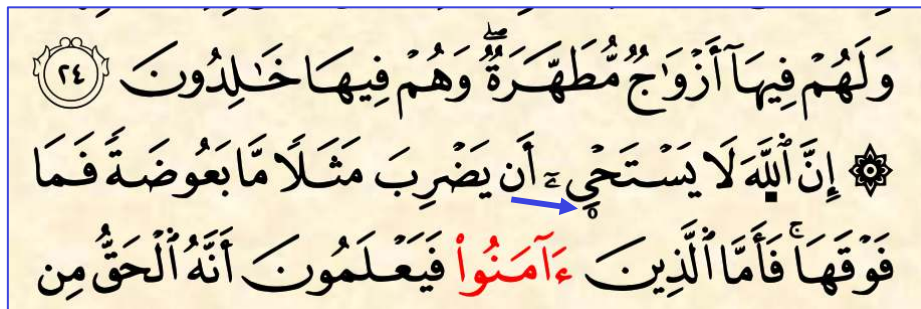 وَلَهُمۡ فِيهَآ أَزۡوَٰجٞ مُّطَهَّرَةٞۖ وَهُمۡ فِيهَا خَٰلِدُونَ ٢٤
۞ إِنَّ ٱللَّهَ لَا يَسۡتَحۡيِۦٓ أَن يَضۡرِبَ مَثَلٗا مَّا بَعُوضَةٗ فَمَا
فَوۡقَهَاۚ فَأَمَّا ٱلَّذِينَ ءَآمَنُواْ فَيَعۡلَمُونَ أَنَّهُ ٱلۡحَقُّ مِن